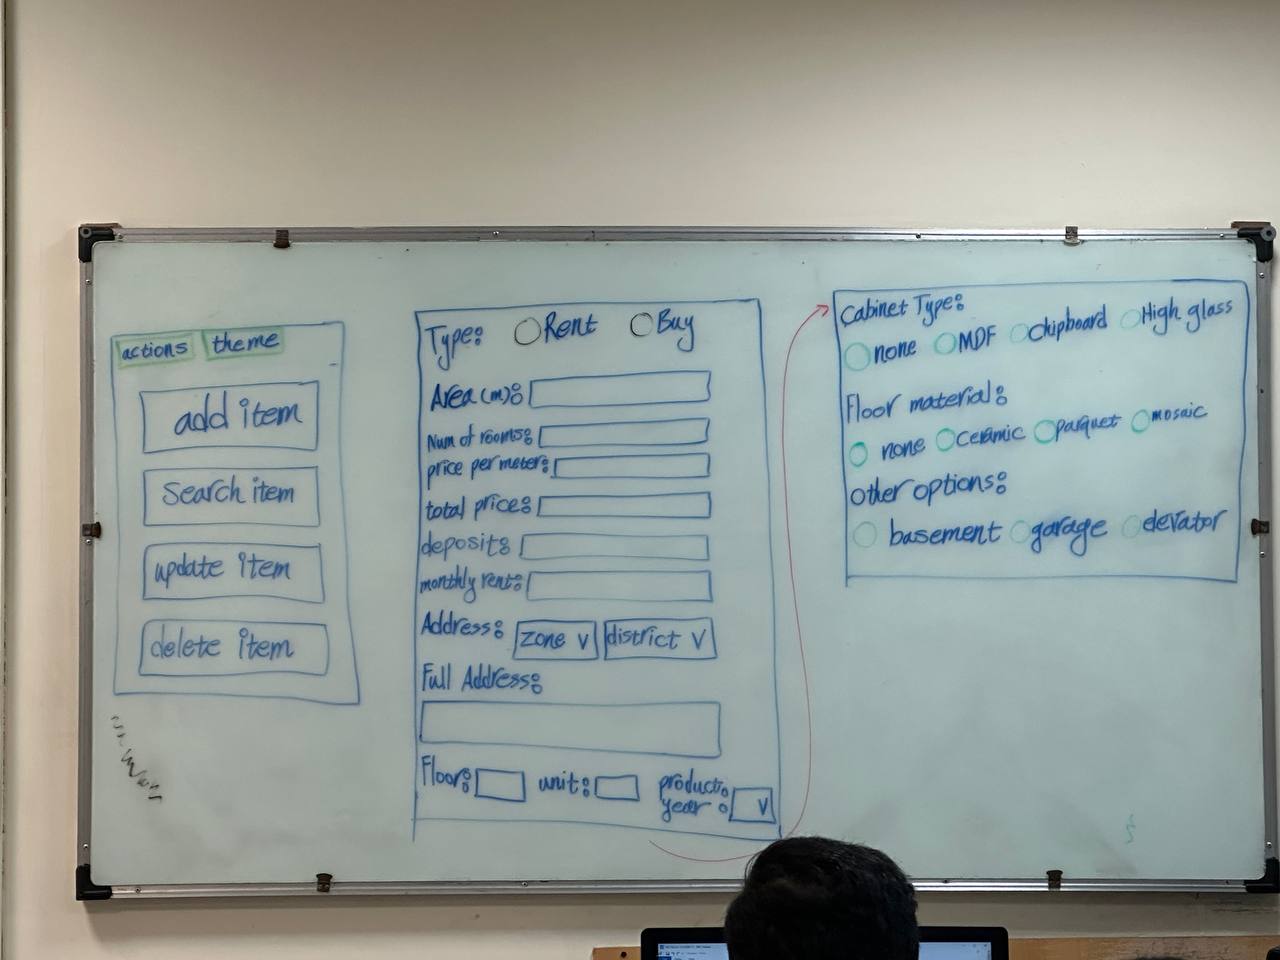 actions theme
add item
Search item
update item
delete item
Type: Rent Buy
Area (m):
Num of rooms:
price per meter:
total price:
deposit:
monthly rent:
Address: zone v district v
Full Address:
Floor: unit: product. year : v
Cabinet Type:
none MDF chipboard High glass
Floor material:
none ceramic parquet mosaic
other options:
basement garage elevator